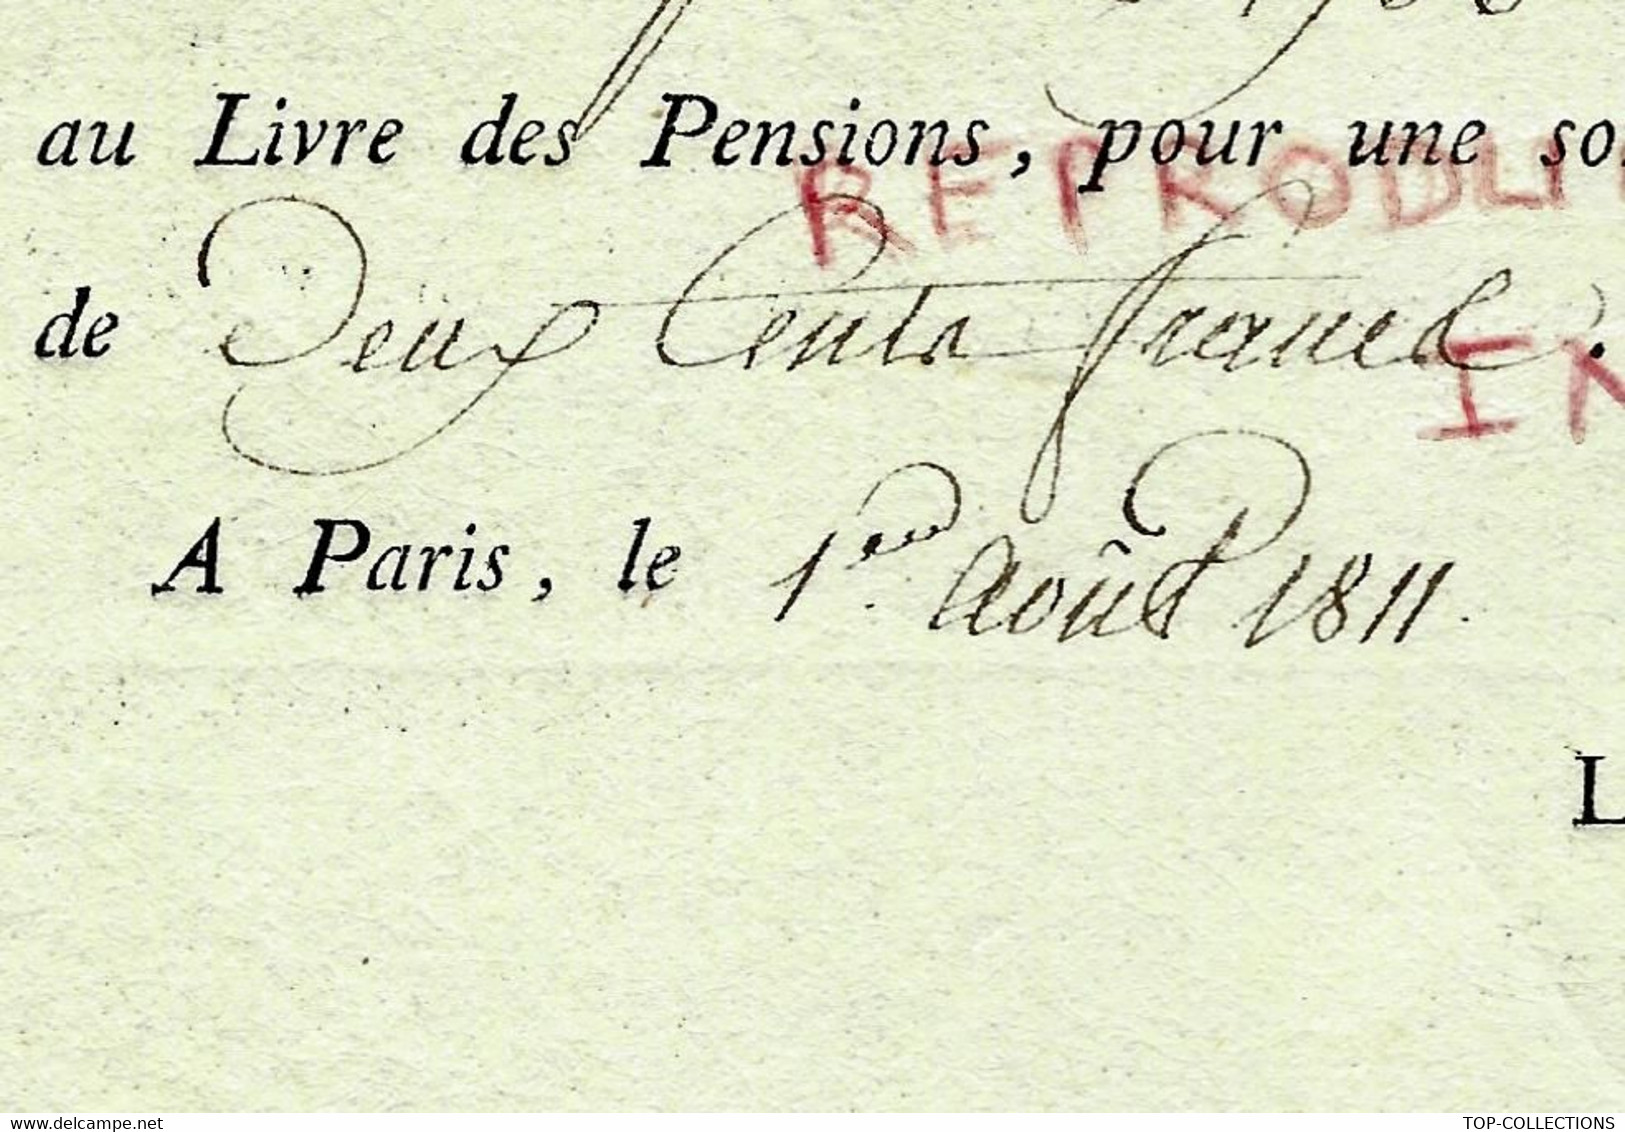 au Livre des Pensions, pour une so
de Deux Cents francs.
A Paris, le 1er. Août 1811.
L
REPRODU
IN
www.delcampe.net
TOP-COLLECTIONS